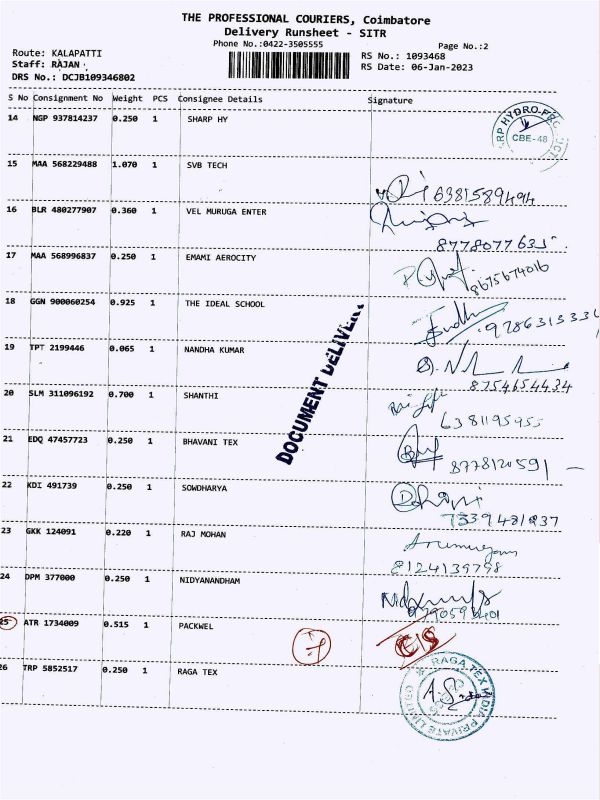 THE PROFESSIONAL COURIERS, Coimbatore
Delivery Runsheet - SITR
Phone No.:0422-3505555
Page No.:2
Route: KALAPATTI
RS No.: 1093468
Staff: RAJAN
RS Date: 06-Jan-2023
DRS No.: DCJB109346802
S No Consignment No Weight PCS Consignee Details Signature
14 NGP 937814237 0.250 1 SHARP HY
RP HYDRO-PRO
CBE-48
15 MAA 568229488 1.070 1 SVB TECH
6381589494
16 BLR 480277907 0.360 1 VEL MURUGA ENTER
8778077635
17 MAA 568996837 0.250 1 EMAMI AEROCITY
8675674016
18 GGN 900060254 0.925 1 THE IDEAL SCHOOL
19 TPT 2199446 0.065 1 NANDHA KUMAR
8754654434
DOCUMENT DELIVER
20 SLM 311096192 0.700 1 SHANTHI
6381195955
21 EDQ 47457723 0.250 1 BHAVANI TEX
8778120591
22 KDI 491739 0.250 1 SOWDHARYA
23 GKK 124091 0.220 1 RAJ MOHAN
Arumugam
8124139798
24 DPM 377000 0.250 1 NIDYANANDHAM
25 ATR 1734009 0.515 1 PACKWEL
26 TRP 5852517 0.250 1 RAGA TEX
RAGA TEX INDIA PRIVATE LIMITED